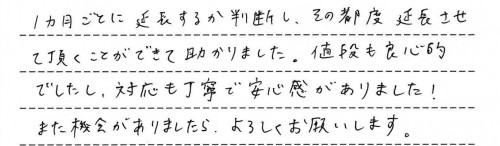 1カ月ごとに延長するか判断し、その都度延長させ
て頂くことができて助かりました。値段も良心的
でしたし、対応も丁寧で安心感がありました!
また機会がありましたら、よろしくお願いします。